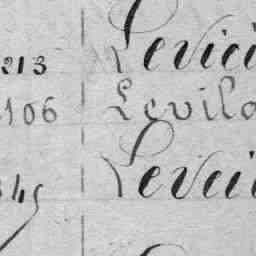 213 Levici
106 Levila
345 Levei